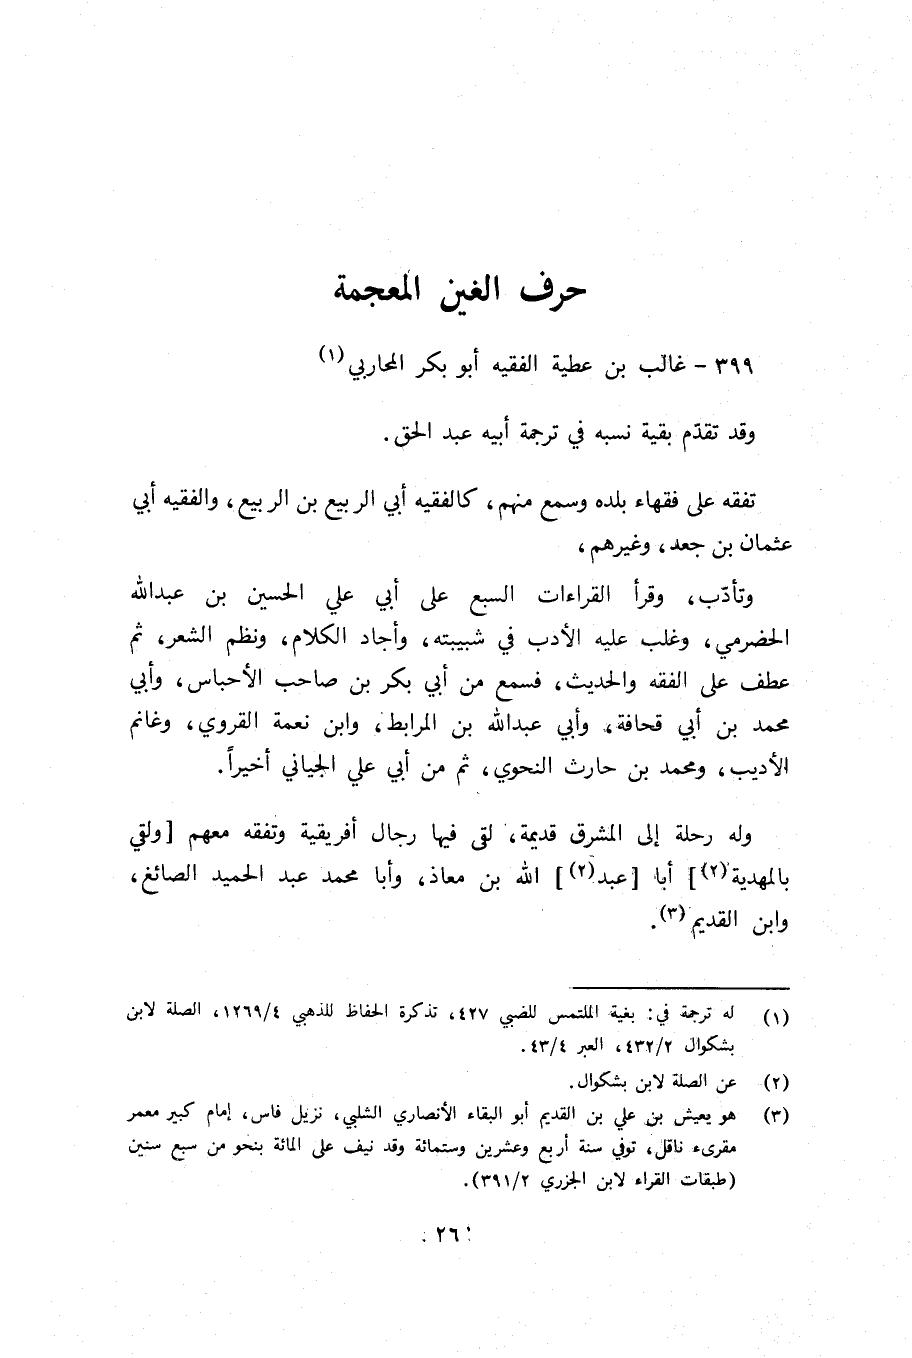 حرف الغين المعجمة
٣٩٩ - غالب بن عطية الفقيه أبو بكر المحاربي(١)
وقد تقدّم بقية نسبه في ترجمة أبيه عبد الحق.
تفقه على فقهاء بلده وسمع منهم، كالفقيه أبي الربيع بن الربيع، والفقيه أبي
عثمان بن جعد، وغيرهم،
وتأدّب، وقرأ القراءات السبع على أبي علي الحسين بن عبدالله
الحضرمي، وغلب عليه الأدب في شبيبته، وأجاد الكلام، ونظم الشعر، ثم
عطف على الفقه والحديث، فسمع من أبي بكر بن صاحب الأحباس، وأبي
محمد بن أبي قحافة، وأبي عبدالله بن المرابط، وابن نعمة القروي، وغانم
الأديب، ومحمد بن حارث النحوي، ثم من أبي علي الجياني أخيراً.
وله رحلة إلى المشرق قديمة، لقى فيها رجال أفريقية وتفقه معهم [ولقي
بالمهدية(٢)] أبا [عبد(٢)] الله بن معاذ، وأبا محمد عبد الحميد الصائغ،
وابن القديم(٣).
(١) له ترجمة في: بغية الملتمس للضبي ٤٢٧، تذكرة الحفاظ للذهبي ١٢٦٩/٤، الصلة لابن
بشكوال ٤٣٢/٢، العبر ٤٣/٤.
(٢) عن الصلة لابن بشكوال.
(٣) هو يعيش بن علي بن القديم أبو البقاء الأنصاري الشلبي، نزيل فاس، إمام كبير معمر
مقرىء ناقل، توفي سنة أربع وعشرين وستمائة وقد نيف على المائة بنحو من سبع سنين
(طبقات القراء لابن الجزري ٣٩١/٢).
٢٦